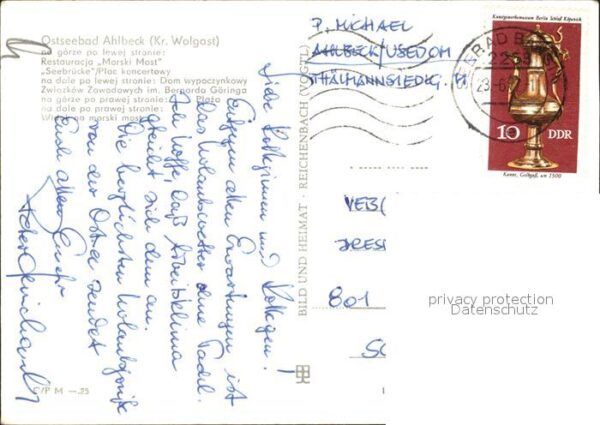 Ostseebad Ahlbeck (Kr. Wolgast)
na górze po lewej stronie:
Restauracja „Morski Most"
„Seebrücke"/Plac koncertowy
na dole po lewej stronie: Dom wypoczynkowy
Związków Zawodowych im. Bernarda Göringa
na górze po prawej stronie: Plaża
na dole po prawej stronie:
Widok na morski most
Liebe Kolleginnen und Kollegen!
Entgegen allen Erwartungen ist
das Urlaubswetter ohne Tadel.
Ich hoffe, daß Arbeitsklima
gleicht sich dem an.
Die herzlichsten Urlaubsgrüße
von der Ostsee sendet
Euch allen Euer
Peter
C/P M —.25
BILD UND HEIMAT · REICHENBACH (VOGTL)
P. MICHAEL
AHLBECK/USEDOM
THÄLMANNSIEDLG.
VEB
DRES
801
Kunstgewerbemuseum Berlin Schloß Köpenick
10 DDR
Kanne, Goldgefäß, um 1500
privacy protection
Datenschutz